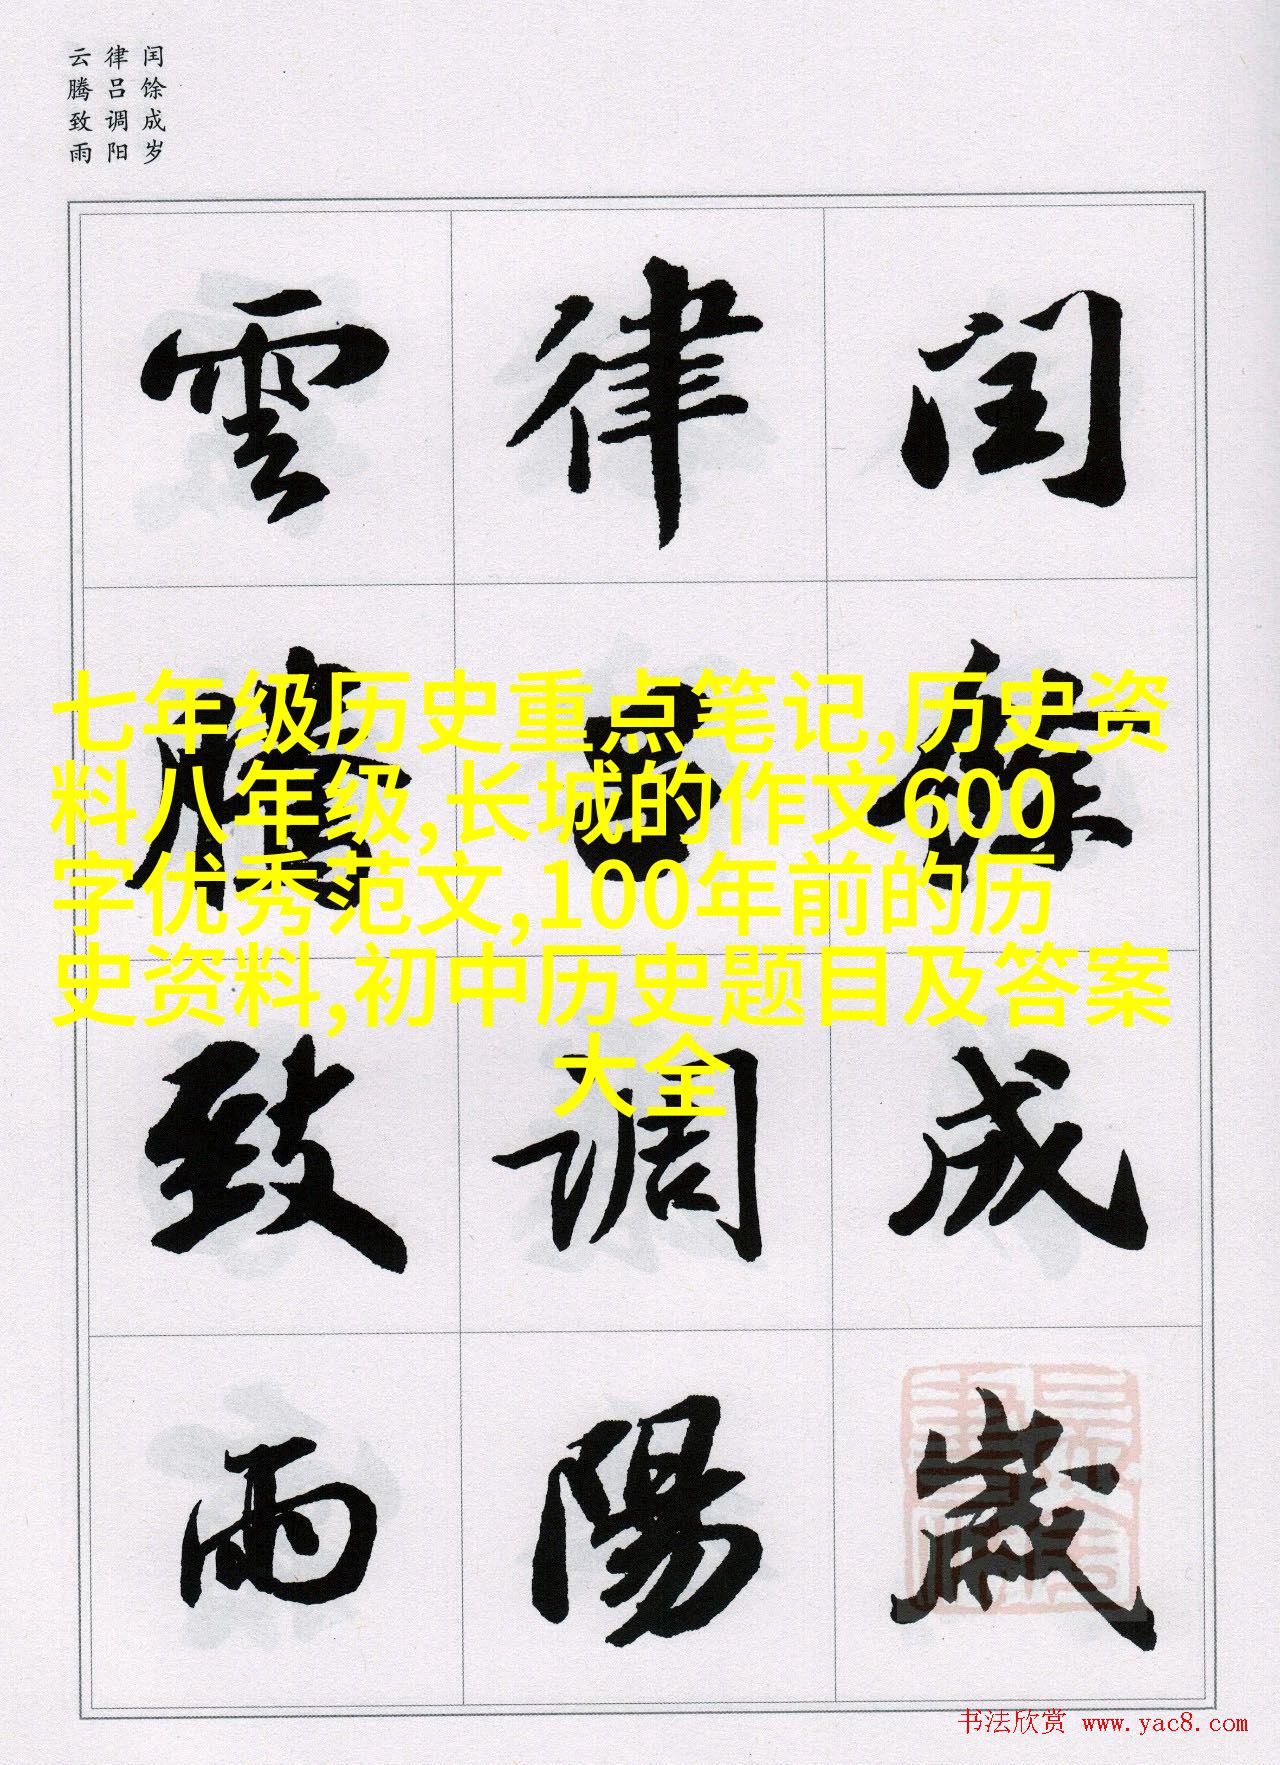 闰馀成岁
律吕调阳
云腾致雨
閏餘成歲
律吕調陽
雲騰致雨
七年级历史重点笔记,历史资
料八年级,长城的作文600
字优秀范文,100年前的历
史资料,初中历史题目及答案
大全
书法欣赏 www.yac8.com